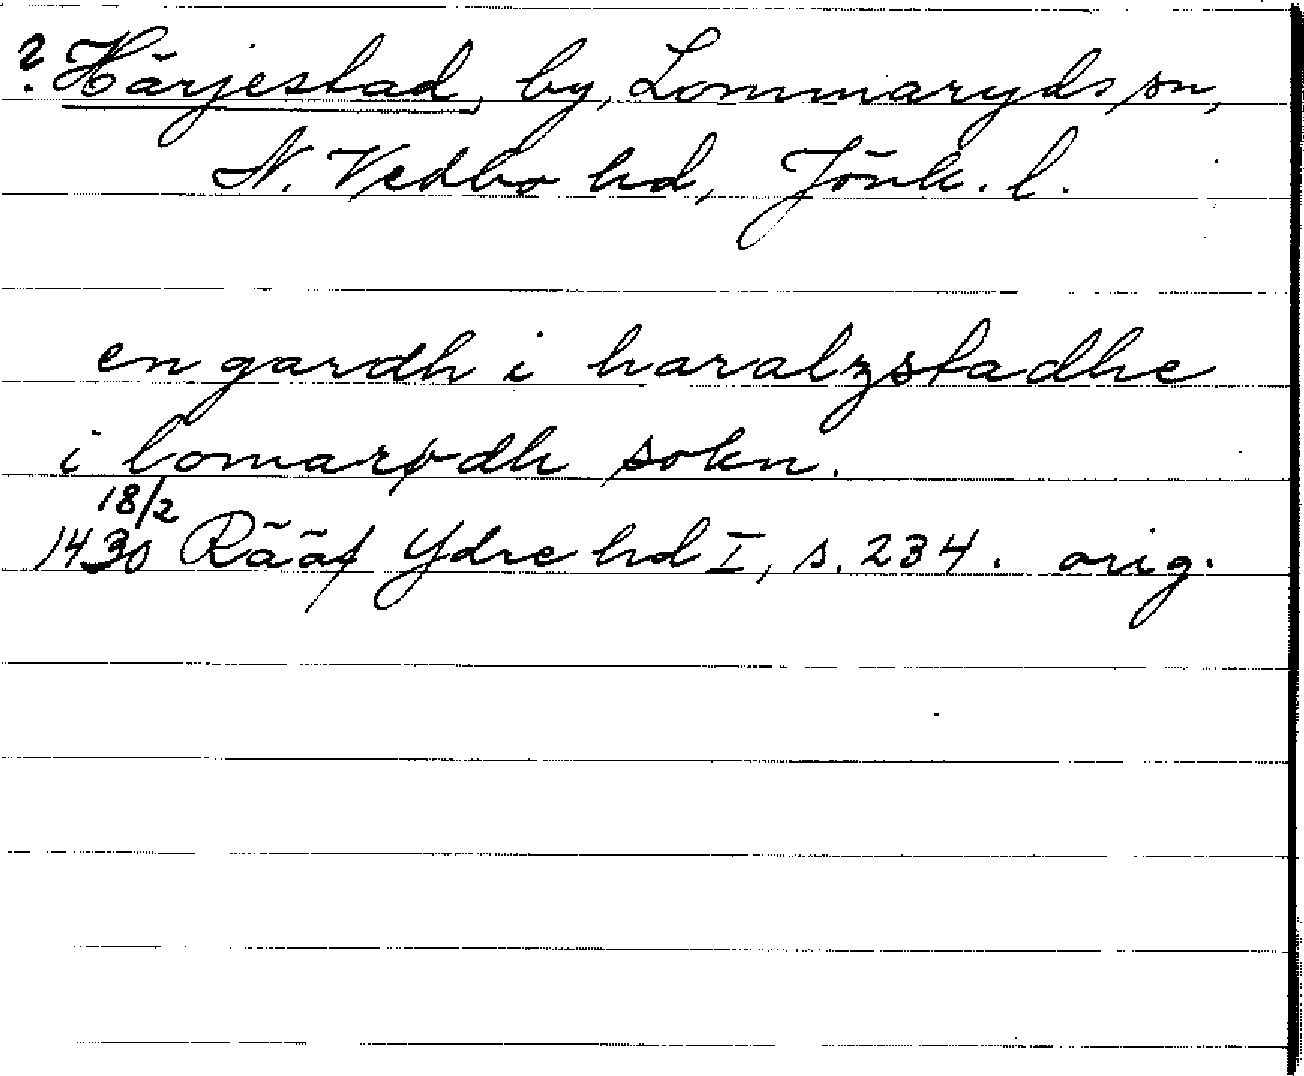 ? Härjestad, by, Lommaryds sn,
N. Vedbo hd, Jönk. l.
en gardh i haralzstadhe
i lomarydh sokn.
18/2
1430 Rääf Ydre hd I, s. 234. orig.